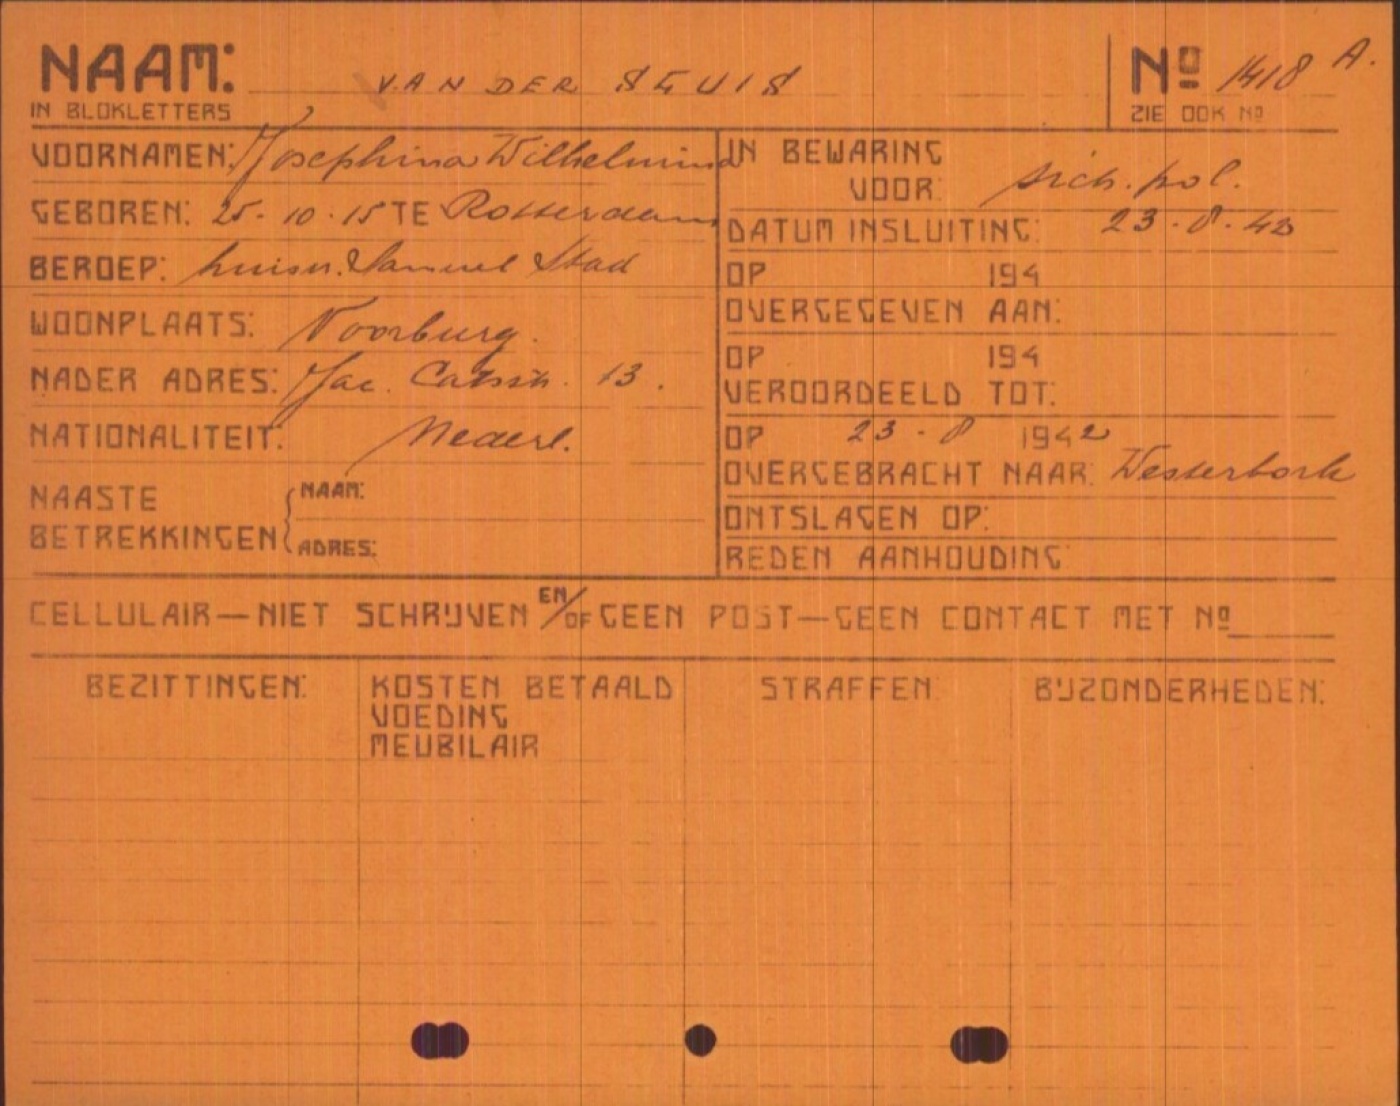 NAAM: VAN DER SLUIS
Nº 1418 A.
IN BLOKLETTERS
ZIE OOK Nº
VOORNAMEN: Josephina Wilhelmina
GEBOREN: 25-10-15 TE Rotterdam
BEROEP: huisvr. Samuel Stad
WOONPLAATS: Voorburg.
NADER ADRES: Jac. Catsstr. 13.
NATIONALITEIT: Nederl.
NAASTE BETREKKINGEN
NAAM:
ADRES:
IN BEWARING
VOOR: sich. pol.
DATUM INSLUITING: 23-8-42
OP 194
OVERGEGEVEN AAN:
OP 194
VEROORDEELD TOT:
OP 23-8 1942
OVERGEBRACHT NAAR: Westerbork
ONTSLAGEN OP:
REDEN AANHOUDING
CELLULAIR—NIET SCHRIJVEN EN/OF GEEN POST—GEEN CONTACT MET Nº
BEZITTINGEN:
KOSTEN BETAALD
VOEDING
MEUBILAIR
STRAFFEN:
BIJZONDERHEDEN: